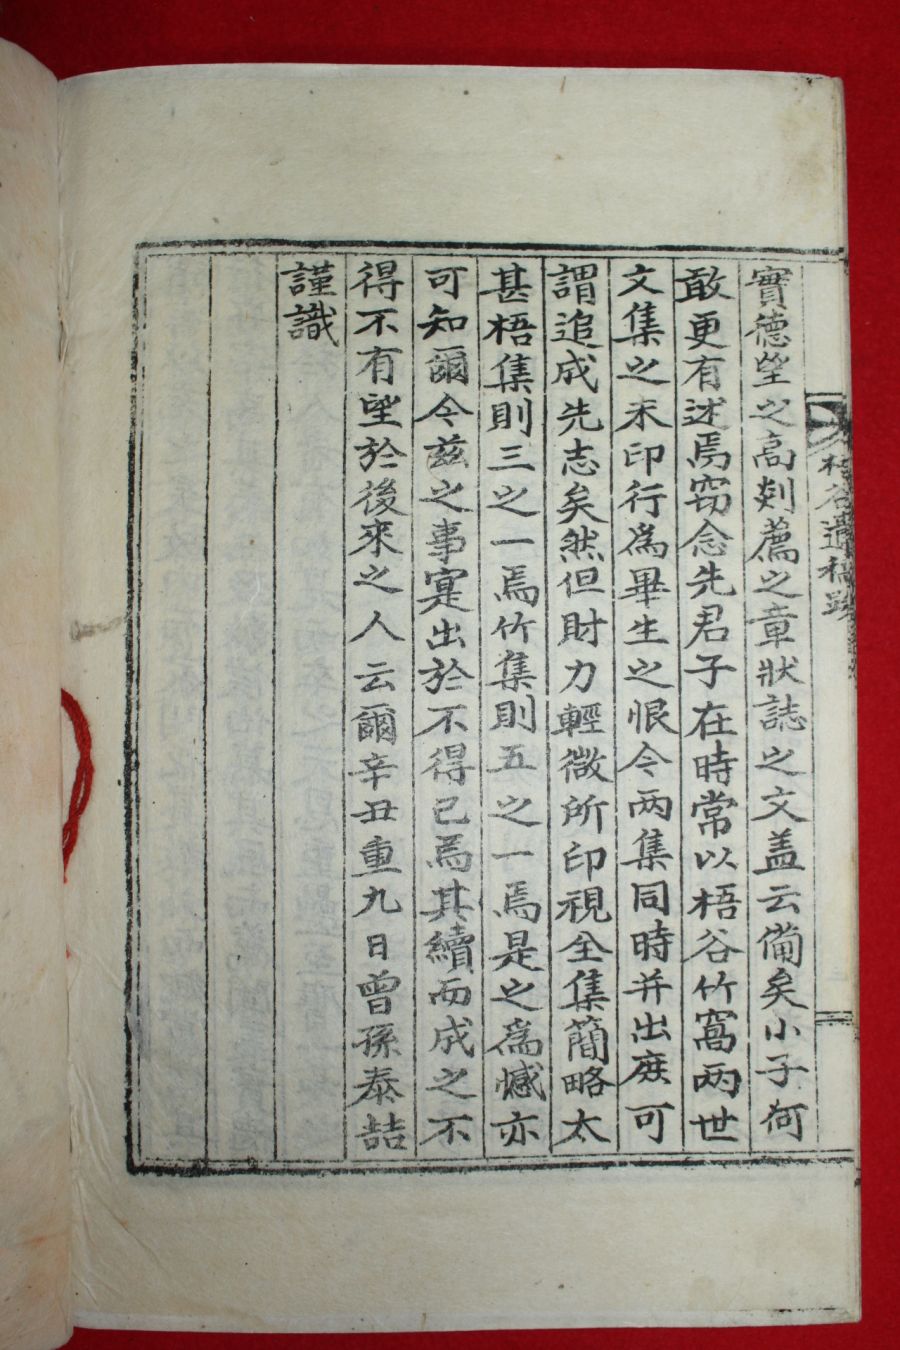 梧谷遺稿跋
實德望之高剡薦之章狀誌之文盖云備矣小子何
敢更有述焉窃念先君子在時常以梧谷竹窩两世
文集之未印行爲畢生之恨今两集同時并出庶可
謂追成先志矣然但財力輕微所印視全集簡略太
甚梧集則三之一焉竹集則五之一焉是之爲憾亦
可知爾今玆之事寔出於不得已焉其續而成之不
得不有望於後來之人云爾辛丑重九日曾孫泰喆
謹識